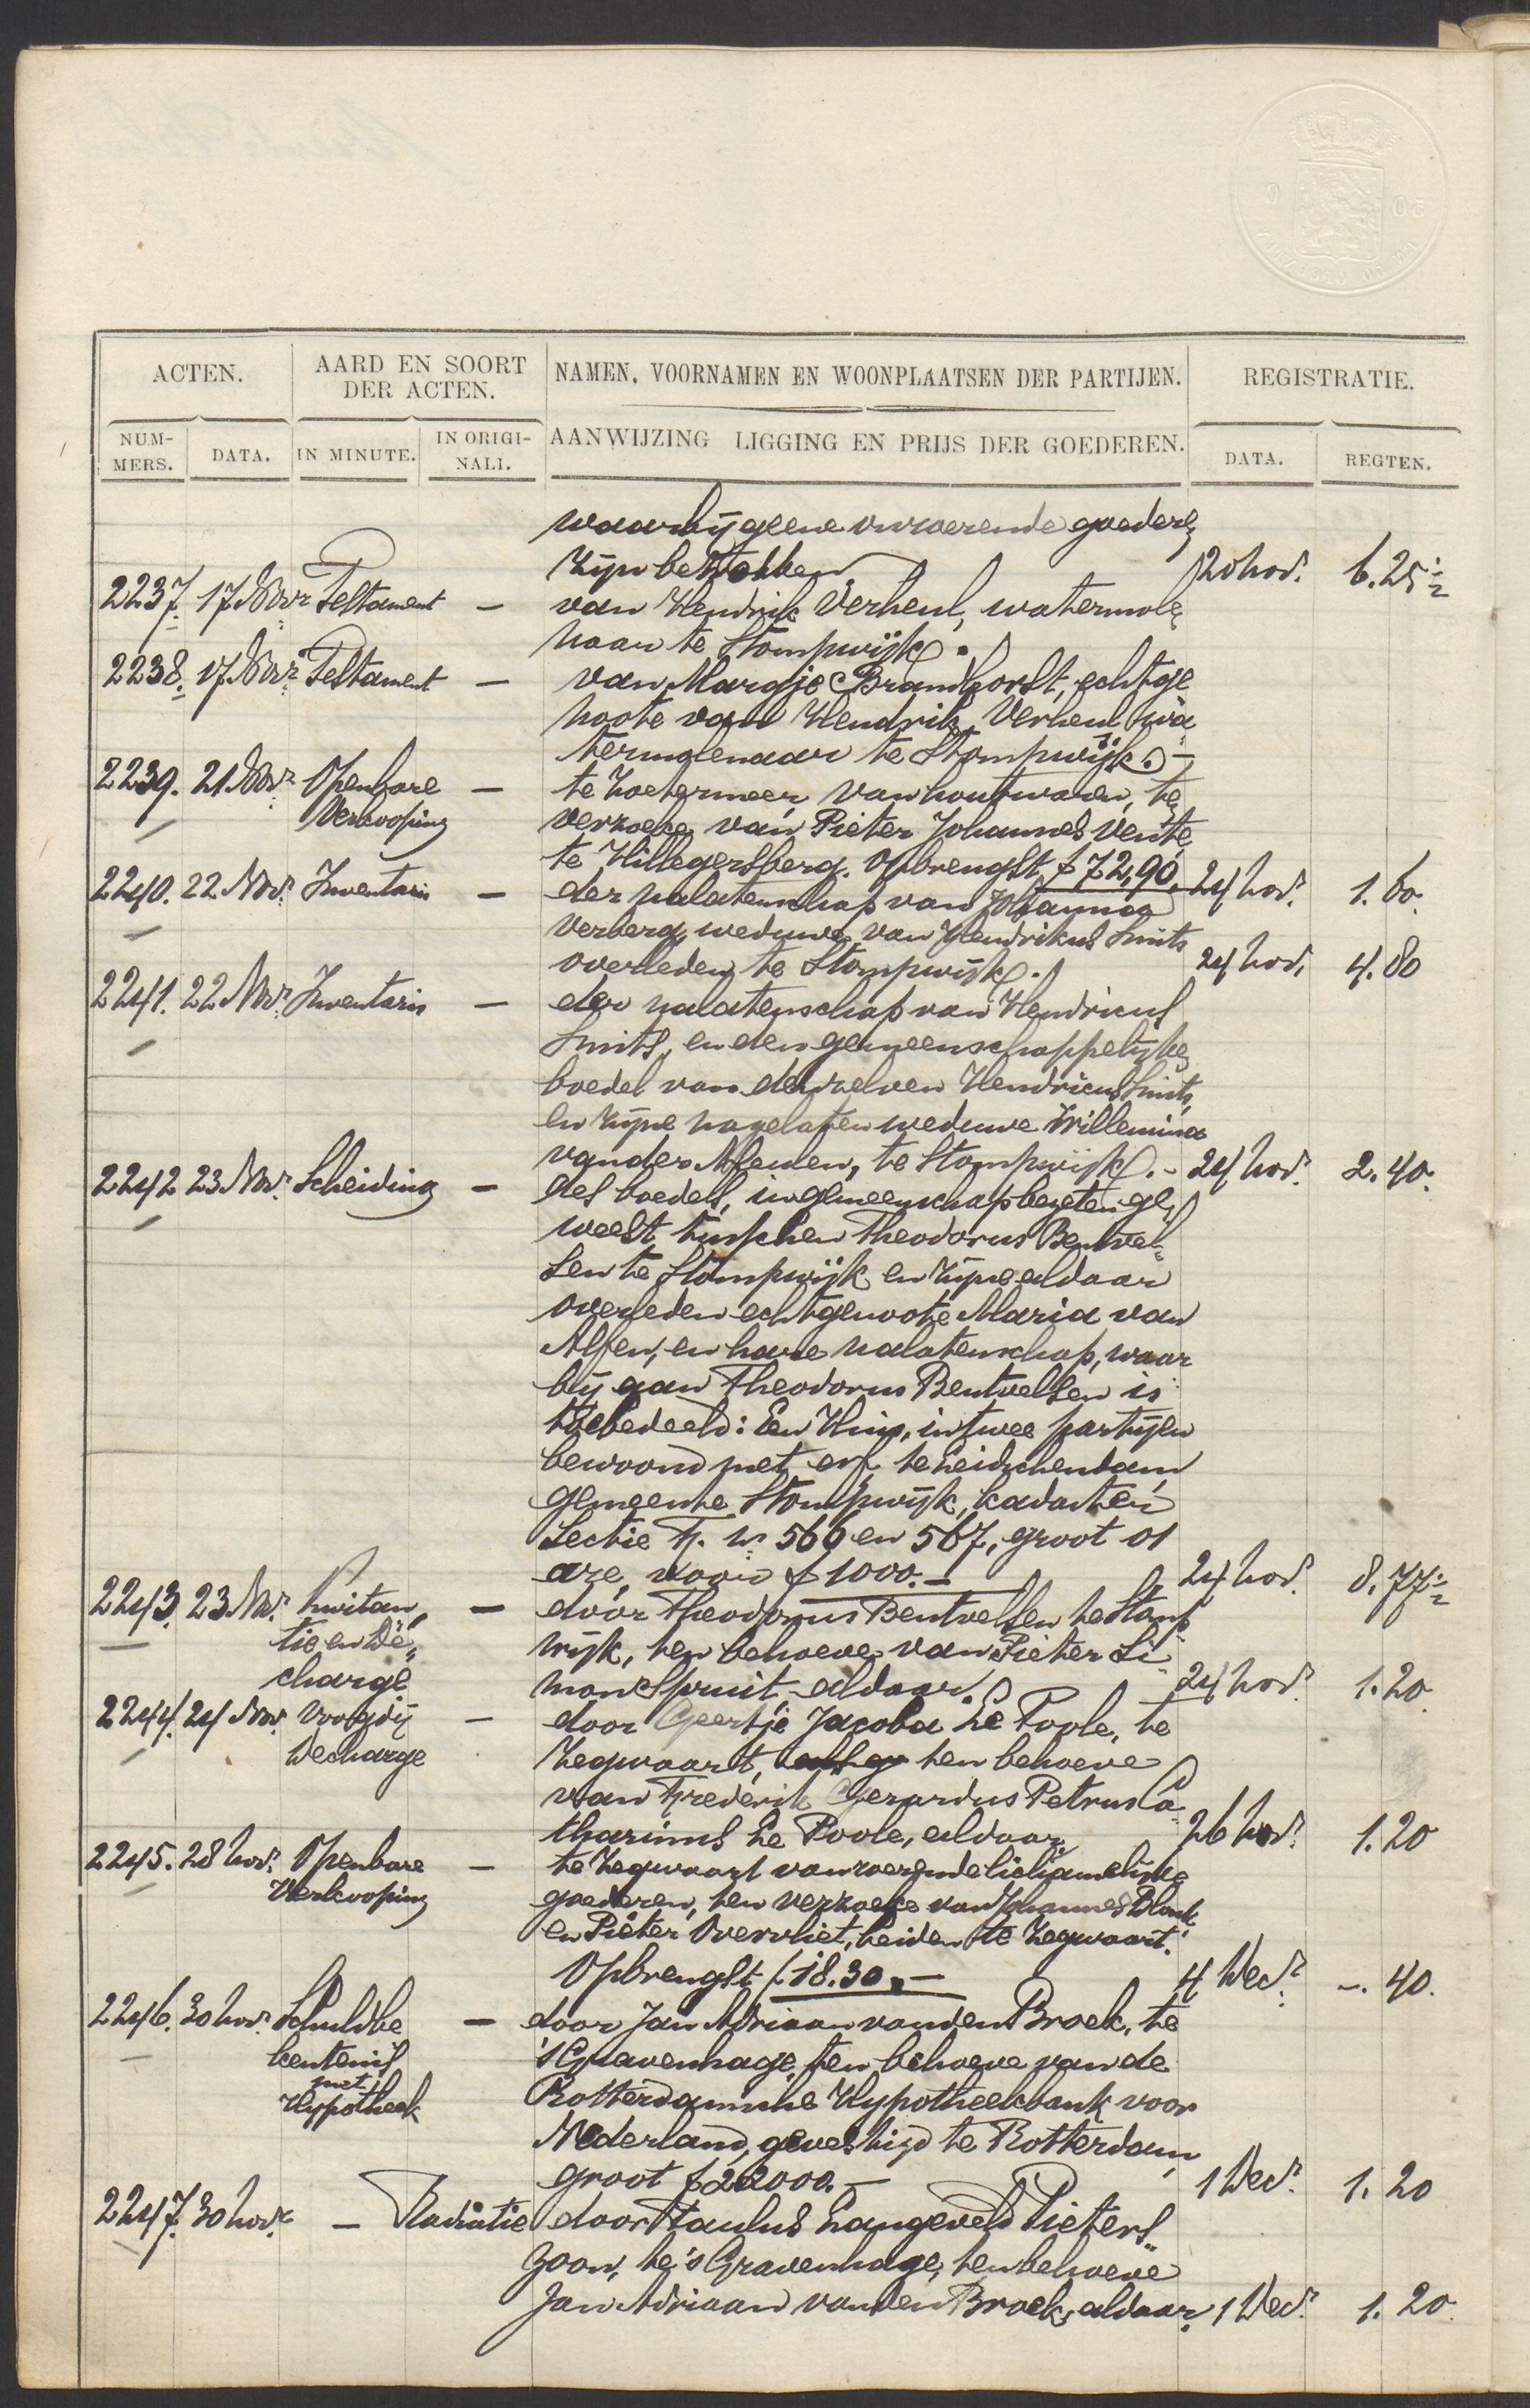 ACTEN.
AARD EN SOORT
DER ACTEN.
NAMEN, VOORNAMEN EN WOONPLAATSEN DER PARTIJEN.
REGISTRATIE.
NUM-
MERS.
DATA.
IN MINUTE.
IN ORIGI-
NALI.
AANWIJZING LIGGING EN PRIJS DER GOEDEREN.
DATA.
REGTEN.
waarbij geene onroerende goederen
zijn betrokken 20 Nov. 6.25½
2237. 17 Novr. Testament – van Hendrik Verheul, watermole
naar te Stompwijk.
2238. 17 Novr. Testament – van Margje Brandhorst, echtge
noote van Hendrik Verheul wa
termolenaar te Stompwijk. –
2239. 21 Novr. Openbare – te Zoetermeer van houtwaren, te
Verkooping verzoeke van Pieter Johannes Vente
te Hillegersberg. Opbrengst f 72,90. 24 Nov. 1.60.
2240. 22 Nov. Inventaris – der nalatenschap van Johanna
Verberg, weduwe van Hendrikus Smits
overleden te Stompwijk. 24 Nov. 4.80
2241. 22 Nov. Inventaris – der nalatenschap van Hendricus
Smits, en den gemeenschappelijken
boedel van denzelven Hendricus Smits,
en zijne nagelaten weduwe Willemina
van der Meulen, te Stompwijk. – 24 Nov. 2.40.
2242 23 Nov. Scheiding – des boedels, in gemeenschap bezeten ge
weest tusschen Theodorus Bentvel
sen te Stompwijk en zijne aldaar
overleden echtgenoote Maria van
Alfen, en hare nalatenschap, waar
bij aan Theodorus Bentvelsen is
toebedeeld: Een Huis, in twee partijen
bewoond met erf, te Leidschendam
gemeente Stompwijk, kadaster
Sectie F. nr 566 en 567, groot 01
are, voor f 1000.– 24 Nov. 8.77½
2243. 23 Nov. Kwitan – door Theodorus Bentvelsen te Stomp
tie en De wijk, ten behoeve van Pieter Si
charge mon Spruit aldaar. 24 Nov. 1.20
2244. 24 Nov. Voogdij – door Geertje Jacoba Le Poole, te
Decharge Zegwaart, ten behoeve
van Frederik Gerardus Petrus Ca
tharinus Le Poole, aldaar 26 Nov. 1.20
2245. 28 Nov. Openbare – te Zegwaart van roerende lichamelijke
Verkooping goederen, ten verzoeke van Johannes Blonk
en Pieter Overvliet, beiden te Zegwaart.
Opbrengst f 18.30.– 4 Dec. –.40.
2246. 30 Nov. Schuldbe – door Jan Adriaan van den Broek, te
kentenis 's Gravenhage, ten behoeve van de
met
Hypotheek Rotterdamsche Hypotheekbank voor
Nederland, gevestigd te Rotterdam,
groot f 22000.– 1 Dec. 1.20
2247. 30 Nov. – Radiatie door Paulus Langeveld Pieters
zoon, te 's Gravenhage, ten behoeve
Jan Adriaan van den Broek, aldaar. 1 Dec. 1.20.